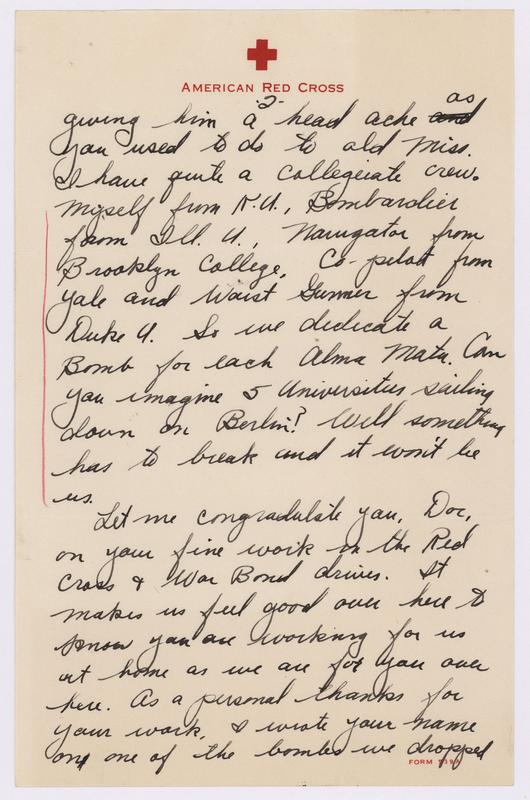 AMERICAN RED CROSS
-2-
giving him a head ache and as
you used to do to old Miss.
I have quite a collegeiate crew.
Myself from K.U., Bombardier
from Ill. U., Navigator from
Brooklyn College, Co-pilot from
Yale and Waist Gunner from
Duke U. So we dedicate a
Bomb for each Alma Mata. Can
you imagine 5 Universitus sailing
down on Berlin? Well something
has to break and it won't be
us.
Let me congradulate you, Doc,
on your fine work on the Red
Cross & War Bond drives. It
makes us feel good over here to
know you are working for us
at home as we are for you over
here. As a personal thanks for
your work, I wrote your name
on one of the bombs we dropped
FORM 539A